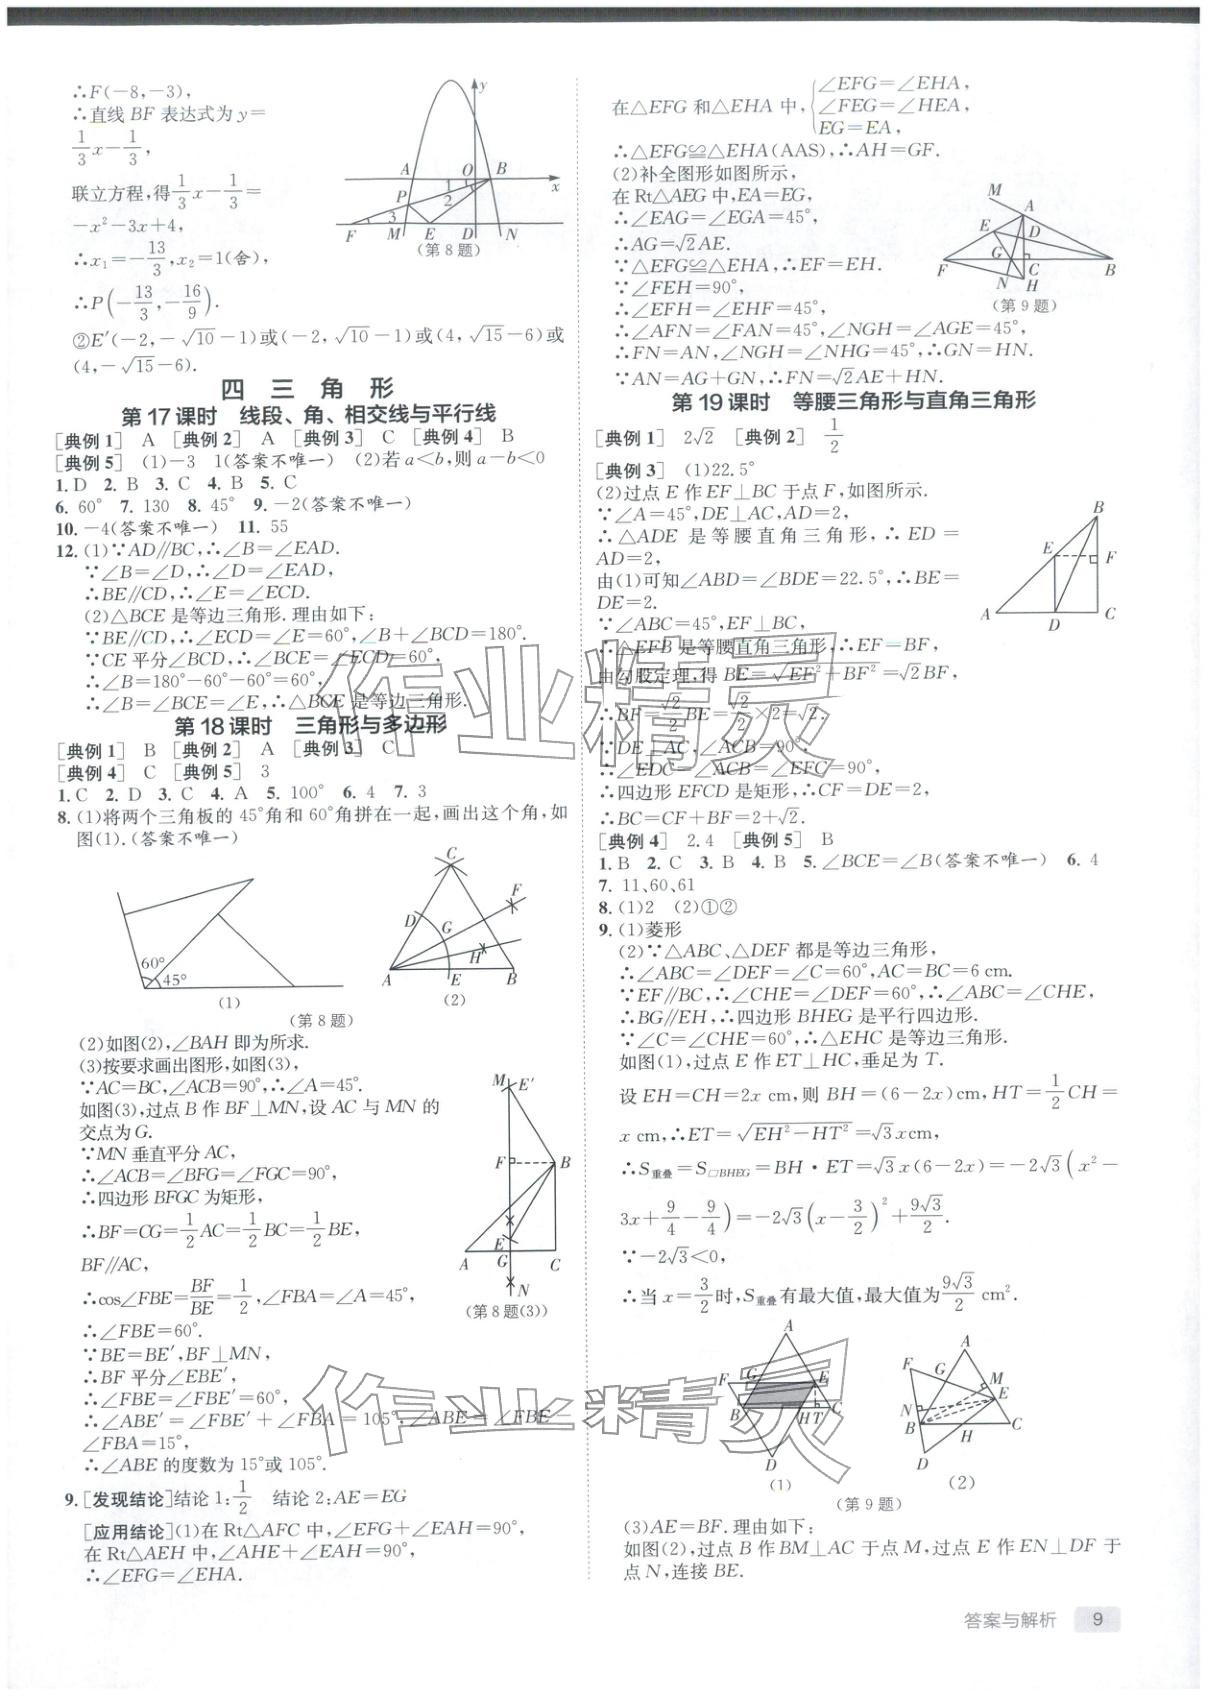 ∴F(−8,−3),
∴直线 BF 表达式为 y=
1/3x−1/3,
联立方程,得1/3x−1/3=
−x²−3x+4,
∴x₁=−13/3,x₂=1(舍),
∴P(−13/3,−16/9).
(第 8 题)
②E′(−2,−√10−1)或(−2,√10−1)或(4,√15−6)或
(4,−√15−6).
四 三 角 形
第 17 课时 线段、角、相交线与平行线
[典例 1] A [典例 2] A [典例 3] C [典例 4] B
[典例 5] (1)−3 1(答案不唯一) (2)若 a<b,则 a−b<0
1. D 2. B 3. C 4. B 5. C
6. 60° 7. 130 8. 45° 9. −2(答案不唯一)
10. −4(答案不唯一) 11. 55
12. (1)∵AD∥BC,∴∠B=∠EAD.
∵∠B=∠D,∴∠D=∠EAD,
∴BE∥CD,∴∠E=∠ECD.
(2)△BCE 是等边三角形.理由如下:
∵BE∥CD,∴∠ECD=∠E=60°,∠B+∠BCD=180°.
∵CE 平分∠BCD,∴∠BCE=∠ECD=60°,
∴∠B=180°−60°−60°=60°,
∴∠B=∠BCE=∠E,∴△BCE 是等边三角形.
第 18 课时 三角形与多边形
[典例 1] B [典例 2] A [典例 3] C
[典例 4] C [典例 5] 3
1. C 2. D 3. C 4. A 5. 100° 6. 4 7. 3
8. (1)将两个三角板的 45°角和 60°角拼在一起,画出这个角,如
图(1).(答案不唯一)
60° 45°
(1) (2)
(第 8 题)
(2)如图(2),∠BAH 即为所求.
(3)按要求画出图形,如图(3),
∵AC=BC,∠ACB=90°,∴∠A=45°.
如图(3),过点 B 作 BF⊥MN,设 AC 与 MN 的
交点为 G.
∵MN 垂直平分 AC,
∴∠ACB=∠BFG=∠FGC=90°,
∴四边形 BFGC 为矩形,
∴BF=CG=1/2AC=1/2BC=1/2BE,
BF∥AC,
∴cos∠FBE=BF/BE=1/2,∠FBA=∠A=45°,
(第 8 题(3))
∴∠FBE=60°.
∵BE=BE′,BF⊥MN,
∴BF 平分∠EBE′,
∴∠FBE=∠FBE′=60°,
∴∠ABE′=∠FBE′+∠FBA=105°,∠ABE=∠FBE−
∠FBA=15°,
∴∠ABE 的度数为 15°或 105°.
9. [发现结论]结论 1:1/2 结论 2:AE=EG
[应用结论](1)在 Rt△AFC 中,∠EFG+∠EAH=90°,
在 Rt△AEH 中,∠AHE+∠EAH=90°,
∴∠EFG=∠EHA.
在△EFG 和△EHA 中,{∠EFG=∠EHA,
∠FEG=∠HEA,
EG=EA,
∴△EFG≌△EHA(AAS),∴AH=GF.
(2)补全图形如图所示,
在 Rt△AEG 中,EA=EG,
∴∠EAG=∠EGA=45°,
∴AG=√2AE.
∵△EFG≌△EHA,∴EF=EH.
∵∠FEH=90°,
∴∠EFH=∠EHF=45°,
(第 9 题)
∴∠AFN=∠FAN=45°,∠NGH=∠AGE=45°,
∴FN=AN,∠NGH=∠NHG=45°,∴GN=HN.
∵AN=AG+GN,∴FN=√2AE+HN.
第 19 课时 等腰三角形与直角三角形
[典例 1] 2√2 [典例 2] 1/2
[典例 3] (1)22.5°
(2)过点 E 作 EF⊥BC 于点 F,如图所示.
∵∠A=45°,DE⊥AC,AD=2,
∴△ADE 是等腰直角三角形,∴ED=
AD=2,
由(1)可知∠ABD=∠BDE=22.5°,∴BE=
DE=2.
∵∠ABC=45°,EF⊥BC,
∴△EFB 是等腰直角三角形,∴EF=BF,
由勾股定理,得 BE=√EF²+BF²=√2BF,
∴BF=√2/2BE=√2/2×2=√2.
∵DE⊥AC,∠ACB=90°,
∴∠EDC=∠ACB=∠EFC=90°,
∴四边形 EFCD 是矩形,∴CF=DE=2,
∴BC=CF+BF=2+√2.
[典例 4] 2.4 [典例 5] B
1. B 2. C 3. B 4. B 5. ∠BCE=∠B(答案不唯一) 6. 4
7. 11、60、61
8. (1)2 (2)①②
9. (1)菱形
(2)∵△ABC、△DEF 都是等边三角形,
∴∠ABC=∠DEF=∠C=60°,AC=BC=6 cm.
∵EF∥BC,∴∠CHE=∠DEF=60°,∴∠ABC=∠CHE,
∴BG∥EH,∴四边形 BHEG 是平行四边形.
∵∠C=∠CHE=60°,∴△EHC 是等边三角形.
如图(1),过点 E 作 ET⊥HC,垂足为 T.
设 EH=CH=2x cm,则 BH=(6−2x)cm,HT=1/2CH=
x cm,∴ET=√EH²−HT²=√3xcm,
∴S重叠=S▱BHEG=BH·ET=√3x(6−2x)=−2√3(x²−
3x+9/4−9/4)=−2√3(x−3/2)²+9√3/2.
∵−2√3<0,
∴当 x=3/2时,S重叠有最大值,最大值为9√3/2 cm².
(1) (2)
(第 9 题)
(3)AE=BF.理由如下:
如图(2),过点 B 作 BM⊥AC 于点 M,过点 E 作 EN⊥DF 于
点 N,连接 BE.
答案与解析 9
作业精灵
作业精灵